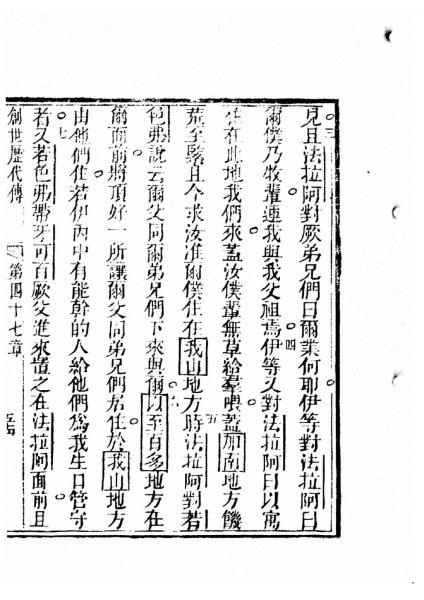 見三且法拉阿對厥弟兄們曰爾業何耶伊等對法拉阿曰
爾僕乃牧輩連我與我父祖焉四伊等又對法拉阿曰以寓
住在此地我們來蓋汝僕輩無草給羣喂蓋加南地方饑
荒至緊且今求汝准爾僕住在我山地方五時法拉阿對若
色弗說云爾父同爾弟兄們下來與爾六以至百多地方在
爾面前將頂好一所讓爾父同弟兄們居住於我山地方
由他們住若伊內中有能幹的人給他們為我生口管守
者七又若色弗帶牙可百厥父進來置之在法拉阿面前且
創世歷代傳 第四十七章